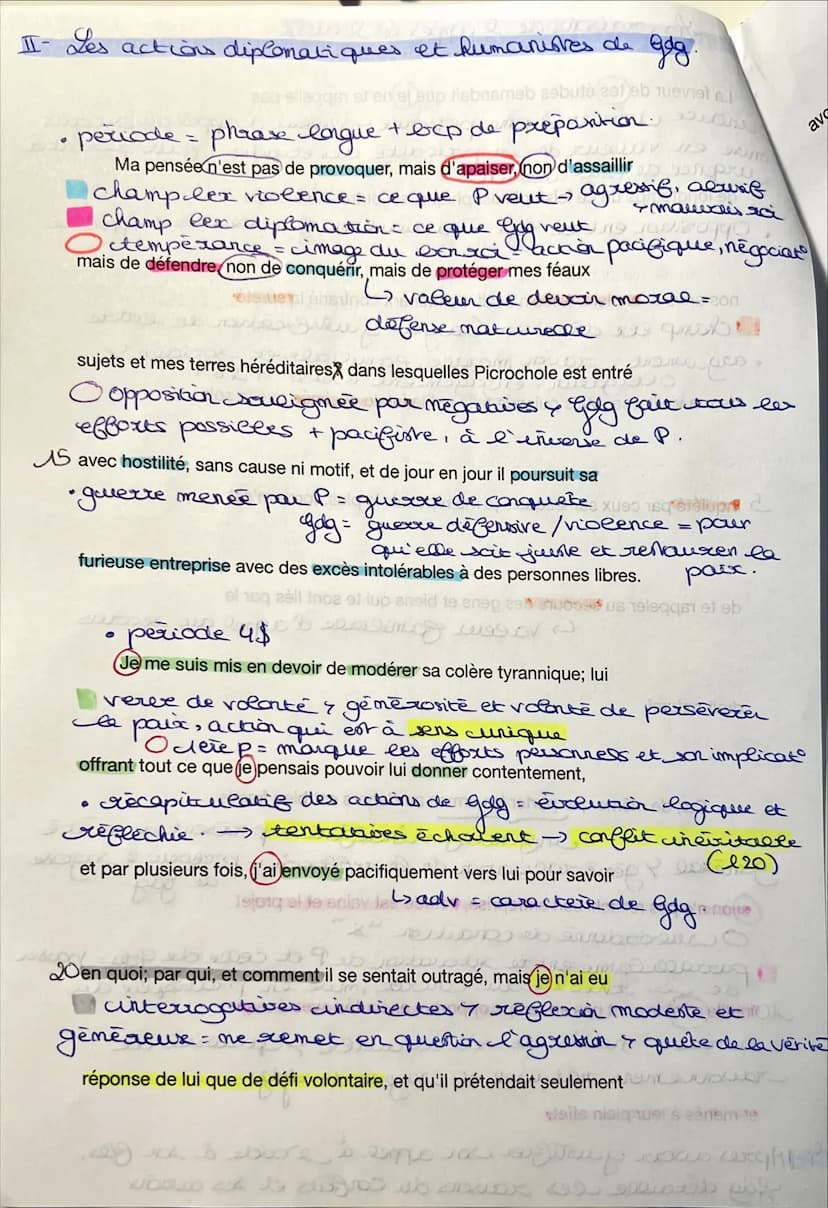 II- Les actions diplomatiques et humanistes de Gdg.
• période = phrase longue + bcp de préposition.
Ma pensée n'est pas de provoquer, mais d'apaiser, non d'assaillir
champ lex violence = ce que P veut → agressif, abusif
→ mauvais roi
champ lex diplomation = ce que Gdg veut
tempérance = image du bon roi = action pacifique, négociat°
mais de défendre, non de conquérir, mais de protéger mes féaux
↳ valeur de devoir moral =
défense naturelle
sujets et mes terres héréditaires, dans lesquelles Picrochole est entré
opposition soulignée par négatives → Gdg fait tous les
efforts possibles + pacifiste, à l'inverse de P.
15 avec hostilité, sans cause ni motif, et de jour en jour il poursuit sa
• guerre menée par P = guerre de conquête
Gdg = guerre défensive / violence = pour
qu'elle soit juste et restaurer la
paix.
furieuse entreprise avec des excès intolérables à des personnes libres.
• période 4$
Je me suis mis en devoir de modérer sa colère tyrannique; lui
verbe de volonté → générosité et volonté de persévérer
la paix, action qui est à sens unique
1ère p = marque les efforts personnels et son implicat°
offrant tout ce que je pensais pouvoir lui donner contentement,
• récapitulatif des actions de Gdg = évolution logique et
réfléchie. → tentatives échouent → conflit inévitable
(l20)
et par plusieurs fois, j'ai envoyé pacifiquement vers lui pour savoir
↳ adv = caractère de Gdg.
20 en quoi; par qui, et comment il se sentait outragé, mais je n'ai eu
interrogatives indirectes → réflexion modeste et
généreux = ne remet en question l'agression → quête de la vérité
réponse de lui que de défi volontaire, et qu'il prétendait seulement